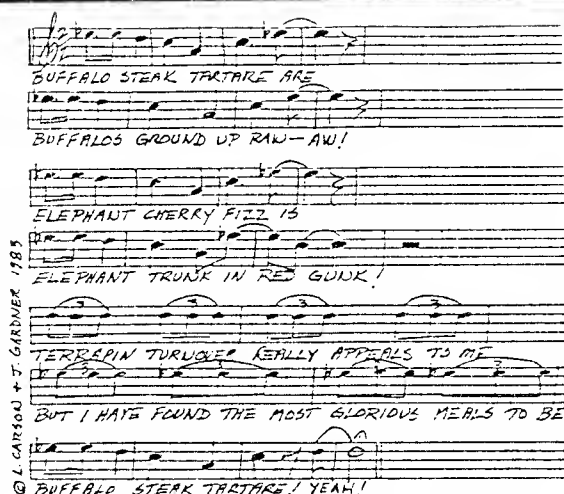 BUFFALO STEAK TARTARE ARE
BUFFALOS GROUND UP RAW—AW!
ELEPHANT CHERRY FIZZ IS
ELEPHANT TRUNK IN RED GUNK!
TERRAPIN TURNOVER REALLY APPEALS TO ME
BUT I HAVE FOUND THE MOST GLORIOUS MEALS TO BE
BUFFALO STEAK TARTARE! YEAH!
© L. CARSON + J. GARDNER 1983